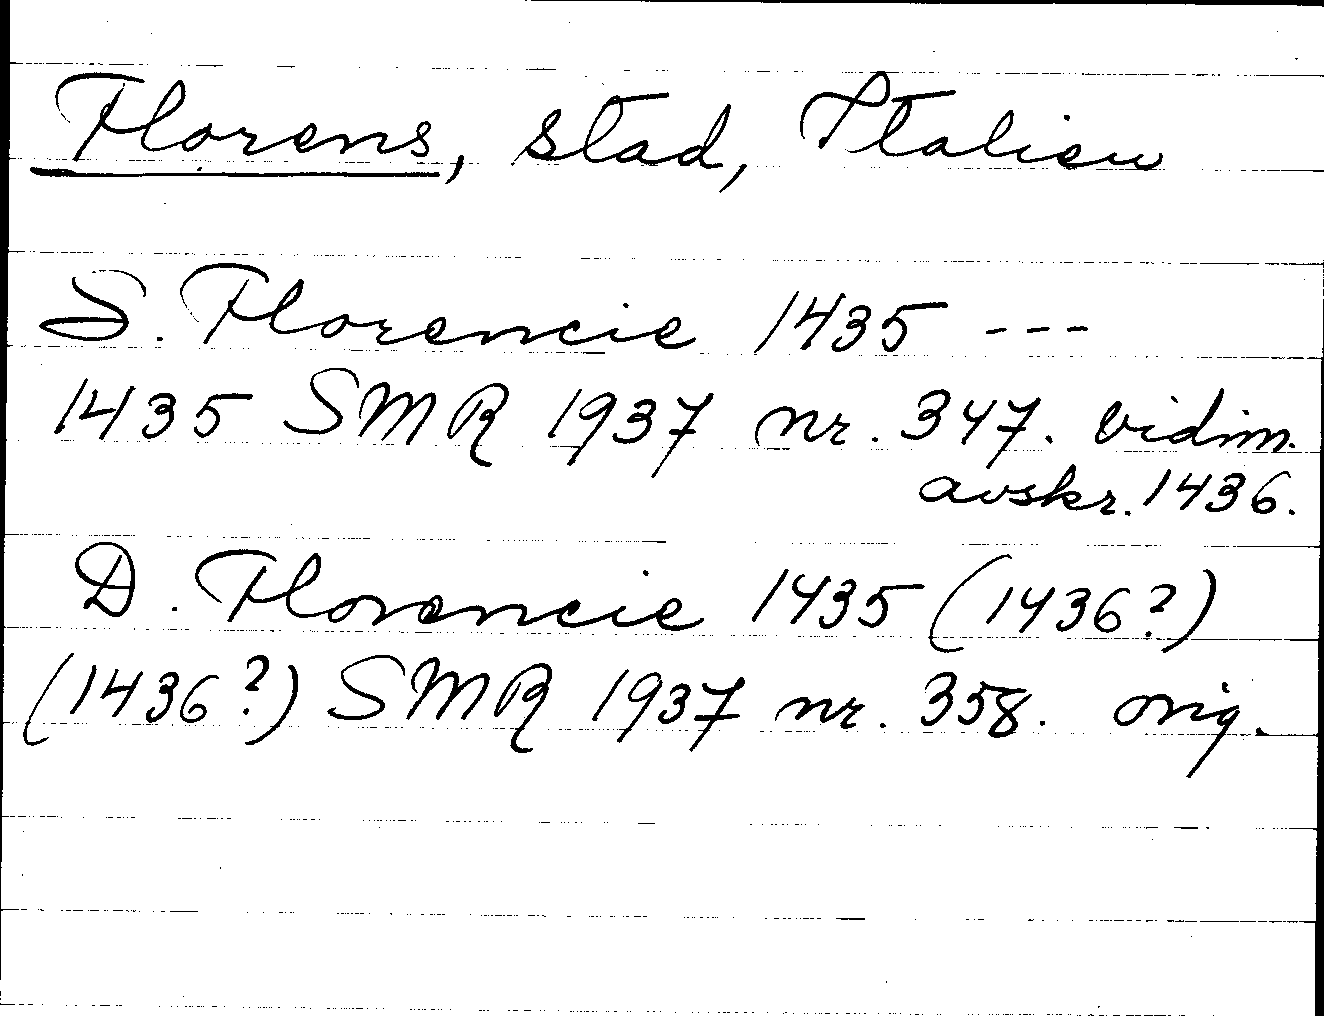 Florens, stad, Italien
S. Florencie 1435 ---
1435 SMR 1937 nr. 347. vidim.
avskr. 1436.
D. Florencie 1435 (1436?)
(1436?) SMR 1937 nr. 358. orig.